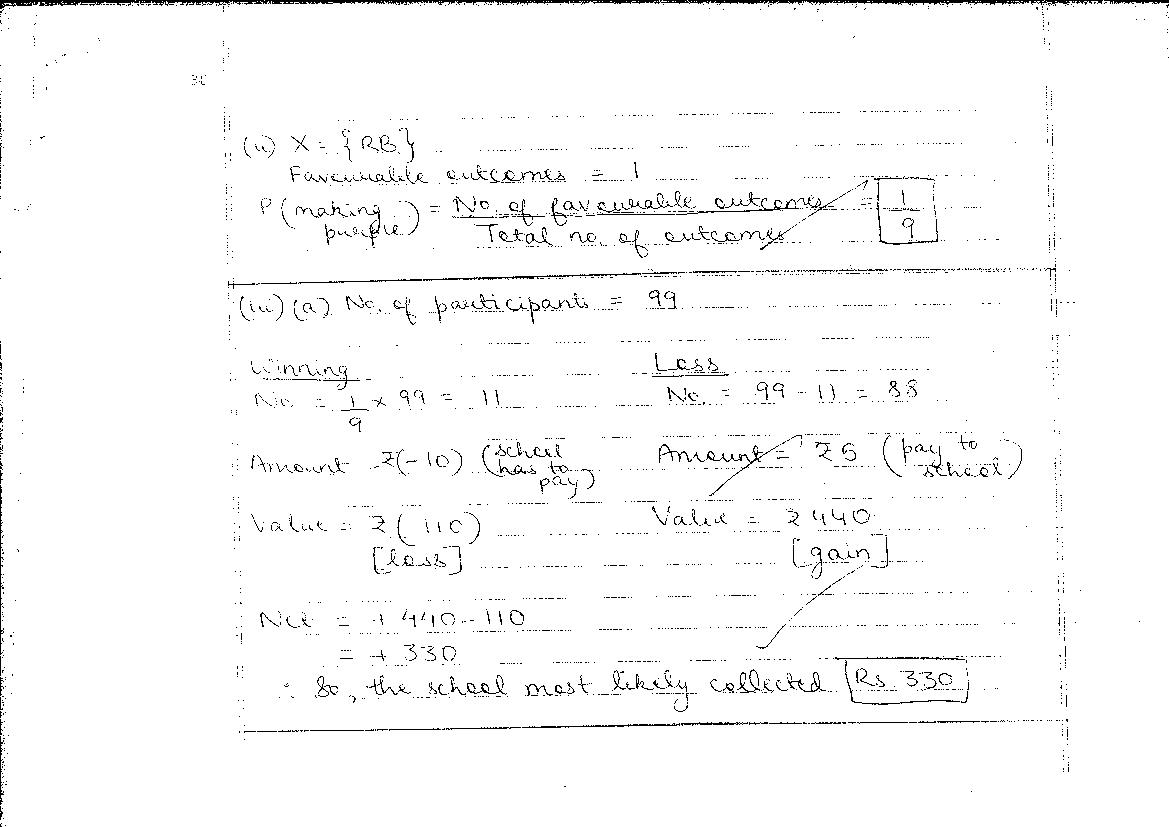 (ii) X = {RB}
Favourable outcomes = 1
P (making purple) = No. of favourable outcomes / Total no. of outcomes = 1/9
(iii) (a) No. of participants = 99
Winning Loss
No. = 1/9 × 99 = 11 No. = 99 - 11 = 88
Amount ₹(-10) (school has to pay) Amount = ₹5 (pay to school)
Value = ₹(110) Value = ₹440
[loss] [gain]
Net = +440 - 110
= +330
∴ So, the school most likely collected Rs 330